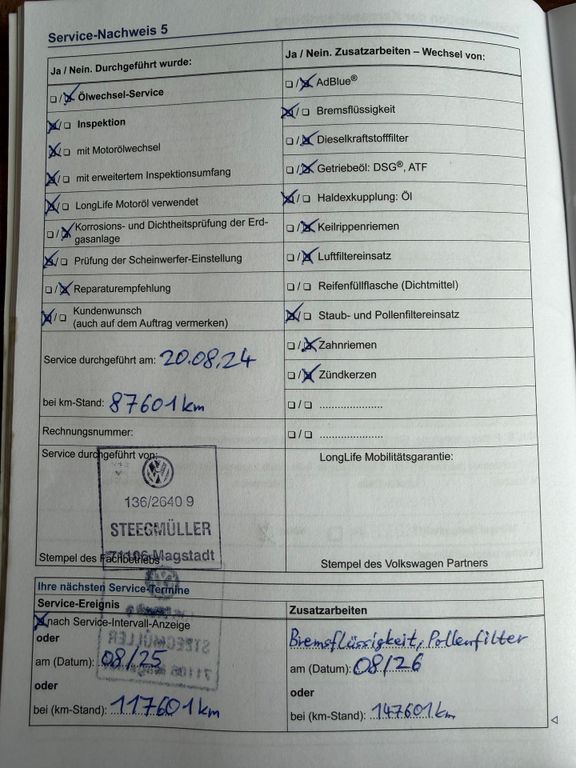 Service-Nachweis 5
Ja / Nein. Durchgeführt wurde:
❑ / ☒ Ölwechsel-Service
☒ / ❑ Inspektion
☒ / ❑ mit Motorölwechsel
☒ / ❑ mit erweitertem Inspektionsumfang
☒ / ❑ LongLife Motoröl verwendet
❑ / ☒ Korrosions- und Dichtheitsprüfung der Erd-
gasanlage
☒ / ❑ Prüfung der Scheinwerfer-Einstellung
❑ / ☒ Reparaturempfehlung
☒ / ❑ Kundenwunsch
(auch auf dem Auftrag vermerken)
Service durchgeführt am: 20.08.24
bei km-Stand: 87601 km
Rechnungsnummer:
Service durchgeführt von:
136/2640 9
STEEGMÜLLER
71106 Magstadt
Stempel des Fachbetriebs
Ja / Nein. Zusatzarbeiten – Wechsel von:
❑ / ☒ AdBlue®
☒ / ❑ Bremsflüssigkeit
❑ / ☒ Dieselkraftstofffilter
❑ / ☒ Getriebeöl: DSG®, ATF
☒ / ❑ Haldexkupplung: Öl
❑ / ☒ Keilrippenriemen
❑ / ☒ Luftfiltereinsatz
❑ / ❑ Reifenfüllflasche (Dichtmittel)
☒ / ❑ Staub- und Pollenfiltereinsatz
❑ / ☒ Zahnriemen
❑ / ☒ Zündkerzen
❑ / ❑ .....................
❑ / ❑ .....................
LongLife Mobilitätsgarantie:
Stempel des Volkswagen Partners
Ihre nächsten Service-Termine
Service-Ereignis
☒ nach Service-Intervall-Anzeige
oder
am (Datum): 08/25
oder
bei (km-Stand): 117601 km
STEEGMÜLLER
71106
Zusatzarbeiten
Bremsflüssigkeit, Pollenfilter
am (Datum): 08/26
oder
bei (km-Stand): 147601 km